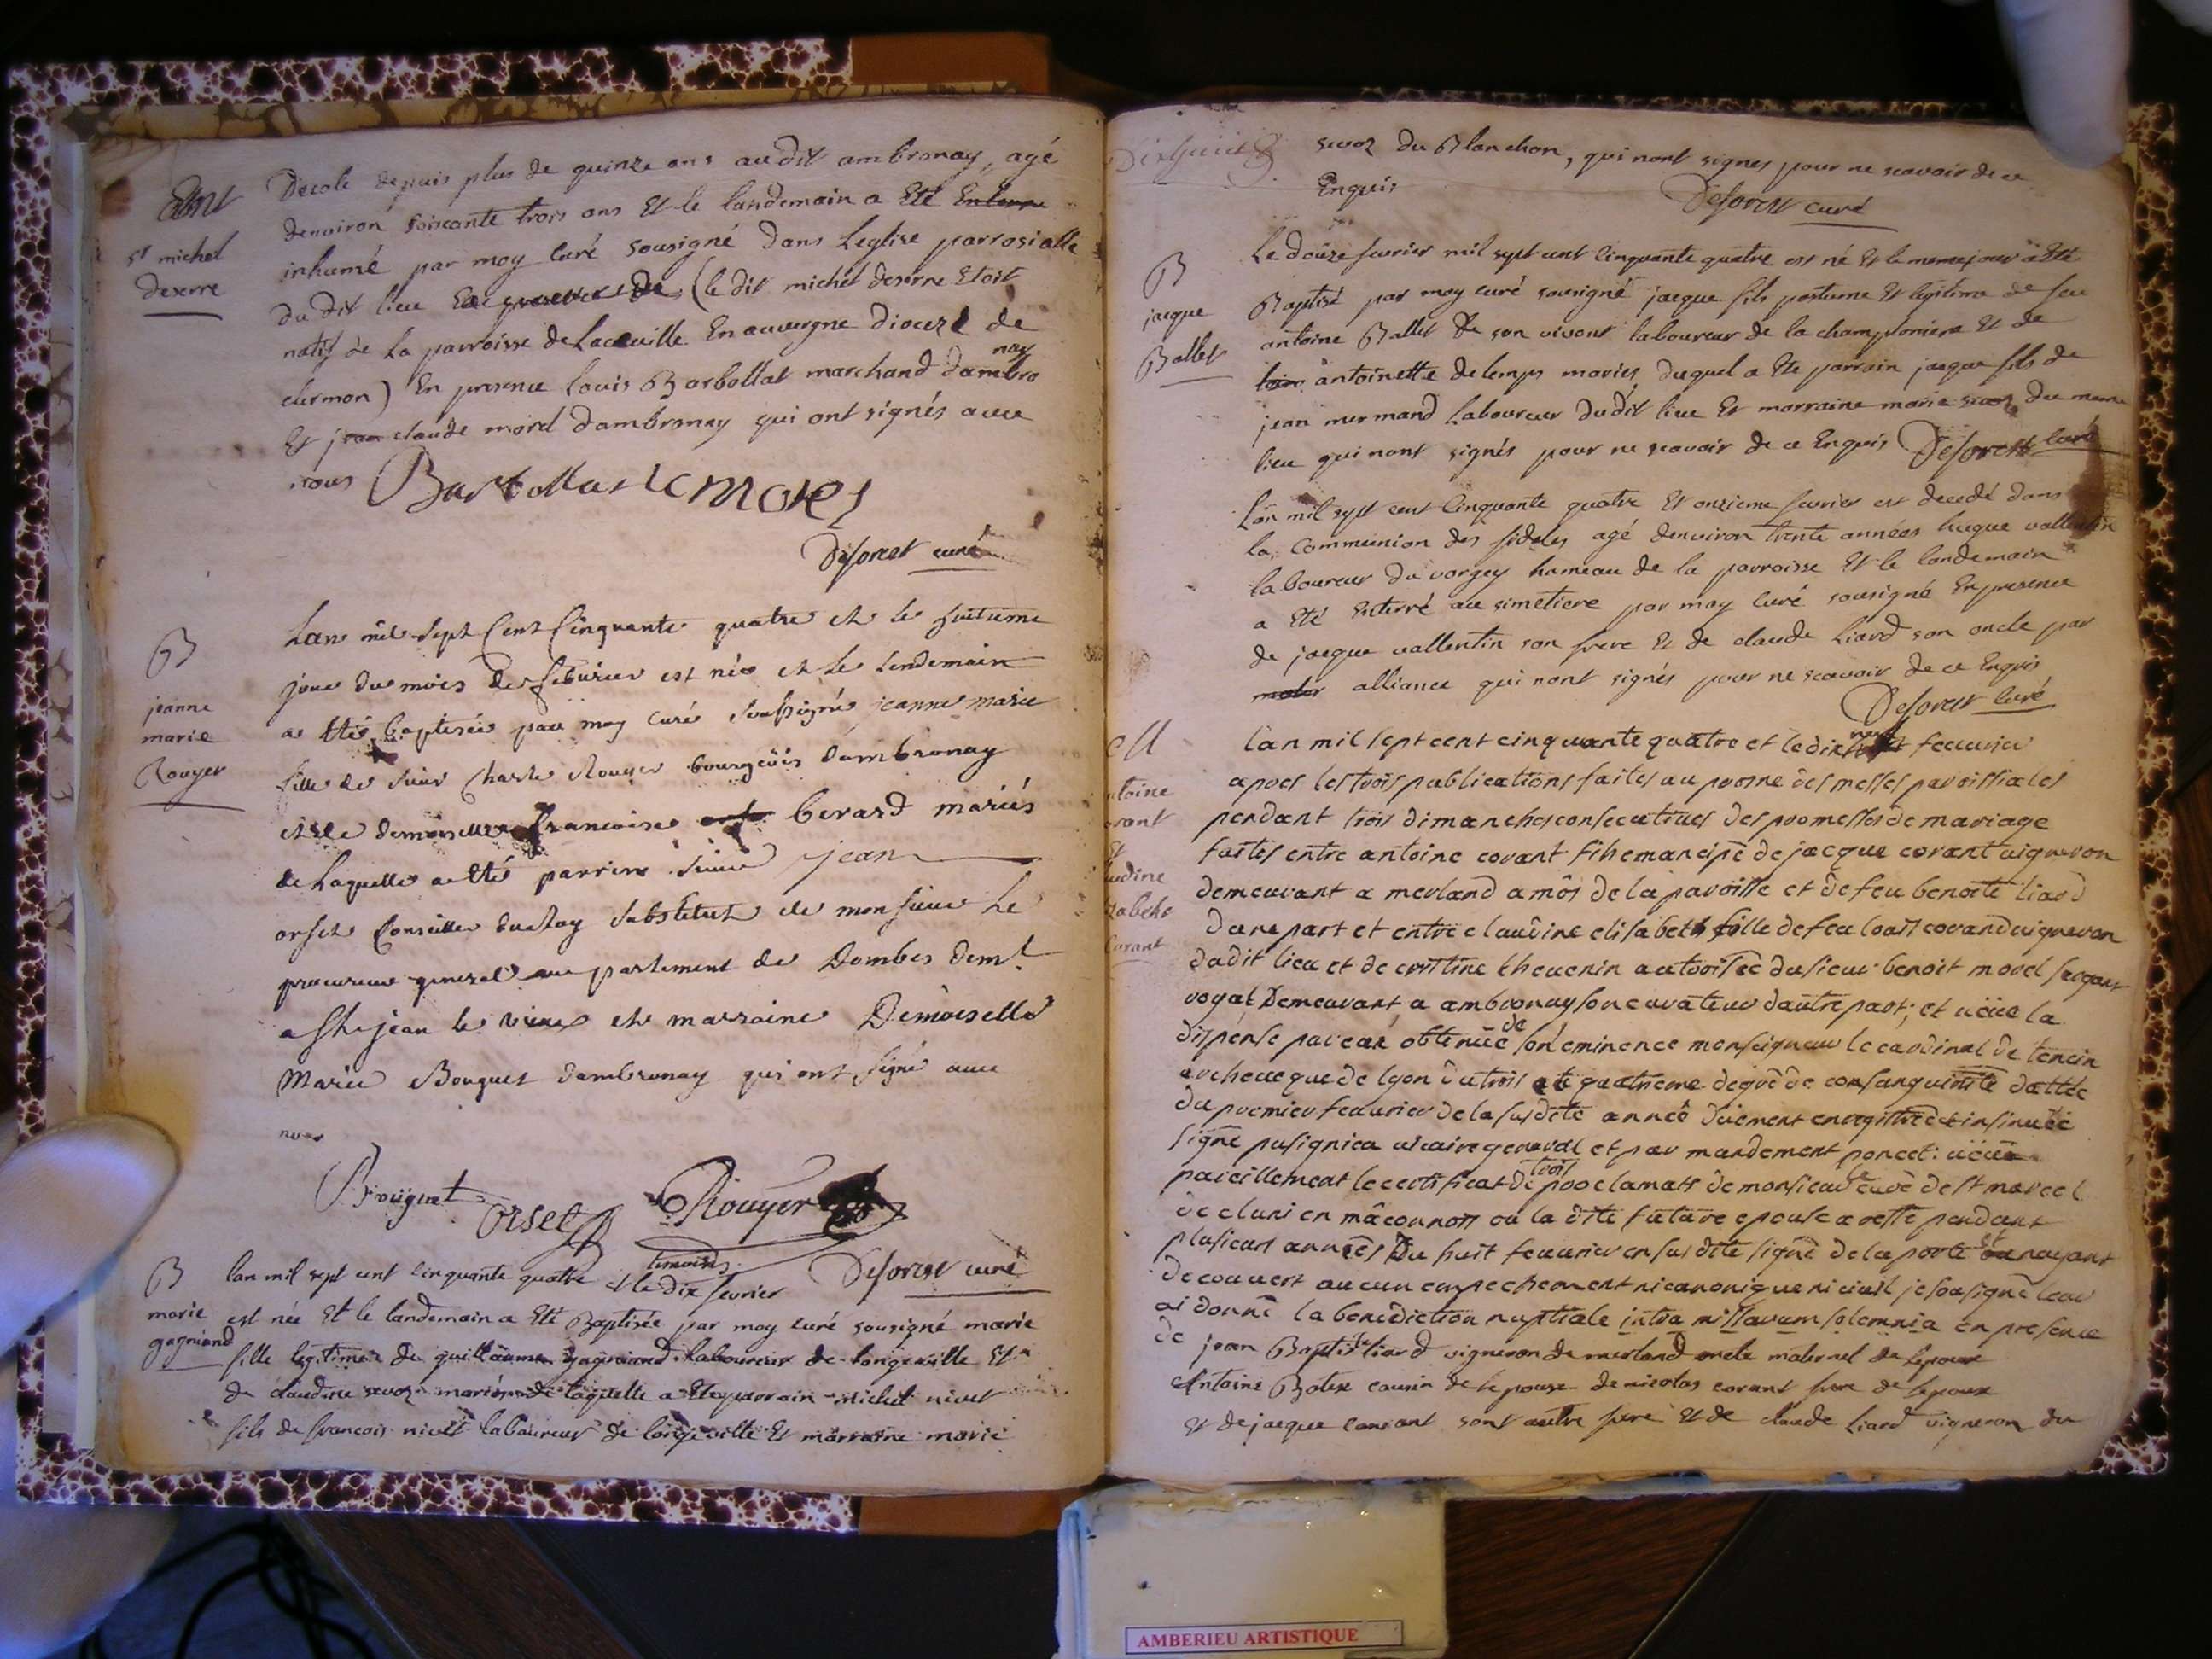 Decole depuis plus de quinze ans audit ambronay, agé
denviron soiscante trois ans Et le landemain a Eté
inhumé par moy Curé sousigné dans Leglise parrosialle
du dit lieu (le dit michel deserre Etoit
natif de La parroisse de Laceuille En auvergne dioceze de
clermon) En presence louis Barbollat marchand dambro
nay
Et jean claude morel dambronay qui ont signés avec
nous
St michel
deserre
Bartollat lc MOREL
Deforest curé
B
jeanne
marie
Rouyer
Lan mil sept Cent Cinquante quatre et le huitieme
jour du mois de feburier est née et le lendemain
a etté baptisée par moy Curé soussigné jeanne marie
fille de sieur Charle Rouyer bourgeois dambronay
et de demoiselle francoise berard mariés
de Laquelle a etté parrin sieur jean
orset Conseiller du Roy substitut de monsieur Le
procureur general au parlement de Dombes demt
a St jean le vieux et marraine Demoiselle
Marie Bouguet dambronay qui ont signé avec
nous
Bouguet orset Rouyer
temoins Deforest curé
B
marie
gagniand
lan mil sept cent cinquante quatre et le dix fevrier
est née Et le landemain a Eté Baptisée par moy curé sousigné marie
fille legitime de guillaume gagniand laboureur de longeville Et
de claudine sevoz mariés de laquelle a Eté parrain michel nivet
fils de francois nivet laboureur de longeville Et marraine marie
sevoz du Blanchon, qui nont signes pour ne scavoir de ce
Enquis
Deforest curé
B
jacque
Ballet
Le douze fevrier mil sept cent cinquante quatre est né Et le meme jour a Eté
Baptisé par moy curé sousigné jacque fils postume Et legitime de feu
antoine Ballet de son vivant laboureur de la championiere Et de
antoinette delemps maries, duquel a Eté parrain jacque fils de
jean mermand Laboureur dudit lieu Et marraine marie sevoz du meme
lieu qui nont signés pour ne scavoir de ce Enquis Deforest curé
Lan mil sept cent cinquante quatre Et onzieme fevrier est decedé dans
la Communion des fideles agé denviron trente années hugue vallentin
laboureur du vorgey hameau de la parroisse Et le landemain
a Eté Enterré au simetiere par moy Curé sousigné En presence
de jacque vallentin son frere Et de claude Liard son oncle par
alliance qui nont signés pour ne scavoir de ce Enquis
Deforest curé
M
antoine
corant
Et
claudine
elizabeth
Corant
Lan mil sept cent cinquante quatre et le dix neuf feuurier
apres les trois publications faites au prosne des messes paroissiales
pendant trois dimanches consecutives des promesses de mariage
faites entre antoine corant fils emancipé de jacque corant uigneron
demeurant a merland amôs de la paroisse et de feu benoite liard
dune part et entre claudine elisabeth fille de feu loais corand uigneron
dudit lieu et de cristine theuenin autorisée du sieur benoit morel sergant
royal Demeurant a ambronay son curateur dautre part; et ueüe la
dispense par eux obtenüe de son eminence monseigneur le cardinal de tencin
archeueque de lyon du trois et quatrieme degré de consanguinité dattée
du premier feuurier de la susdite année düement enregistrée et insinuée
signe pusignieu uicaire general et par mandement poncet: ueüe
pareillement le certificat de trois proclamats de monsieur le curé de st marcel
de cluni en mâconnois ou la dite future epouse a resté pendant
plusieurs années du huit feuurier en susdite signé de la porte et nayant
decouuert aucun empechement ni canonique ni ciuil je sousigné leur
ai donné la benediction nuptiale intra missarum solemnia en presence
de jean Baptiste liard vigneron de merland oncle maternel de lepoux
Antoine Botex cousin de lepouse de nicolas corant frere de lepoux
Et de jacque corant sont autre frere Et de claude Liard vigneron du
AMBERIEU ARTISTIQUE